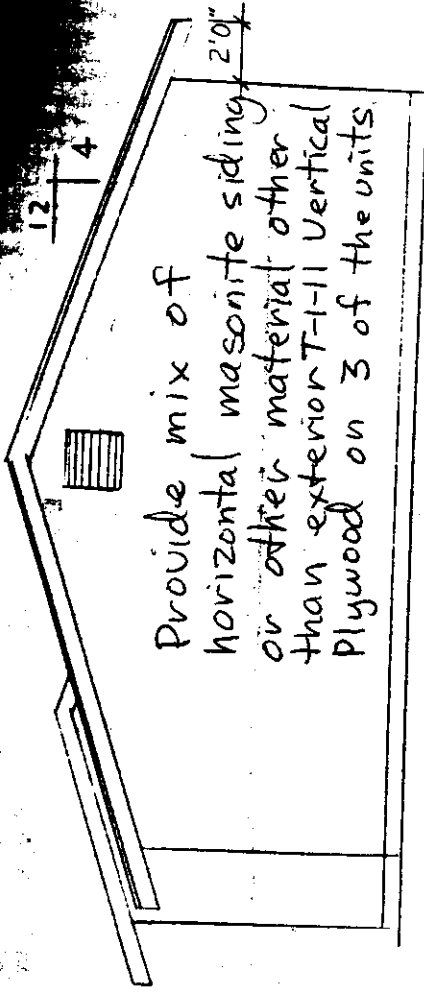 12
4
2'0"
Provide mix of
horizontal masonite siding
or other material other
than exterior T-1-11 Vertical
Plywood on 3 of the units